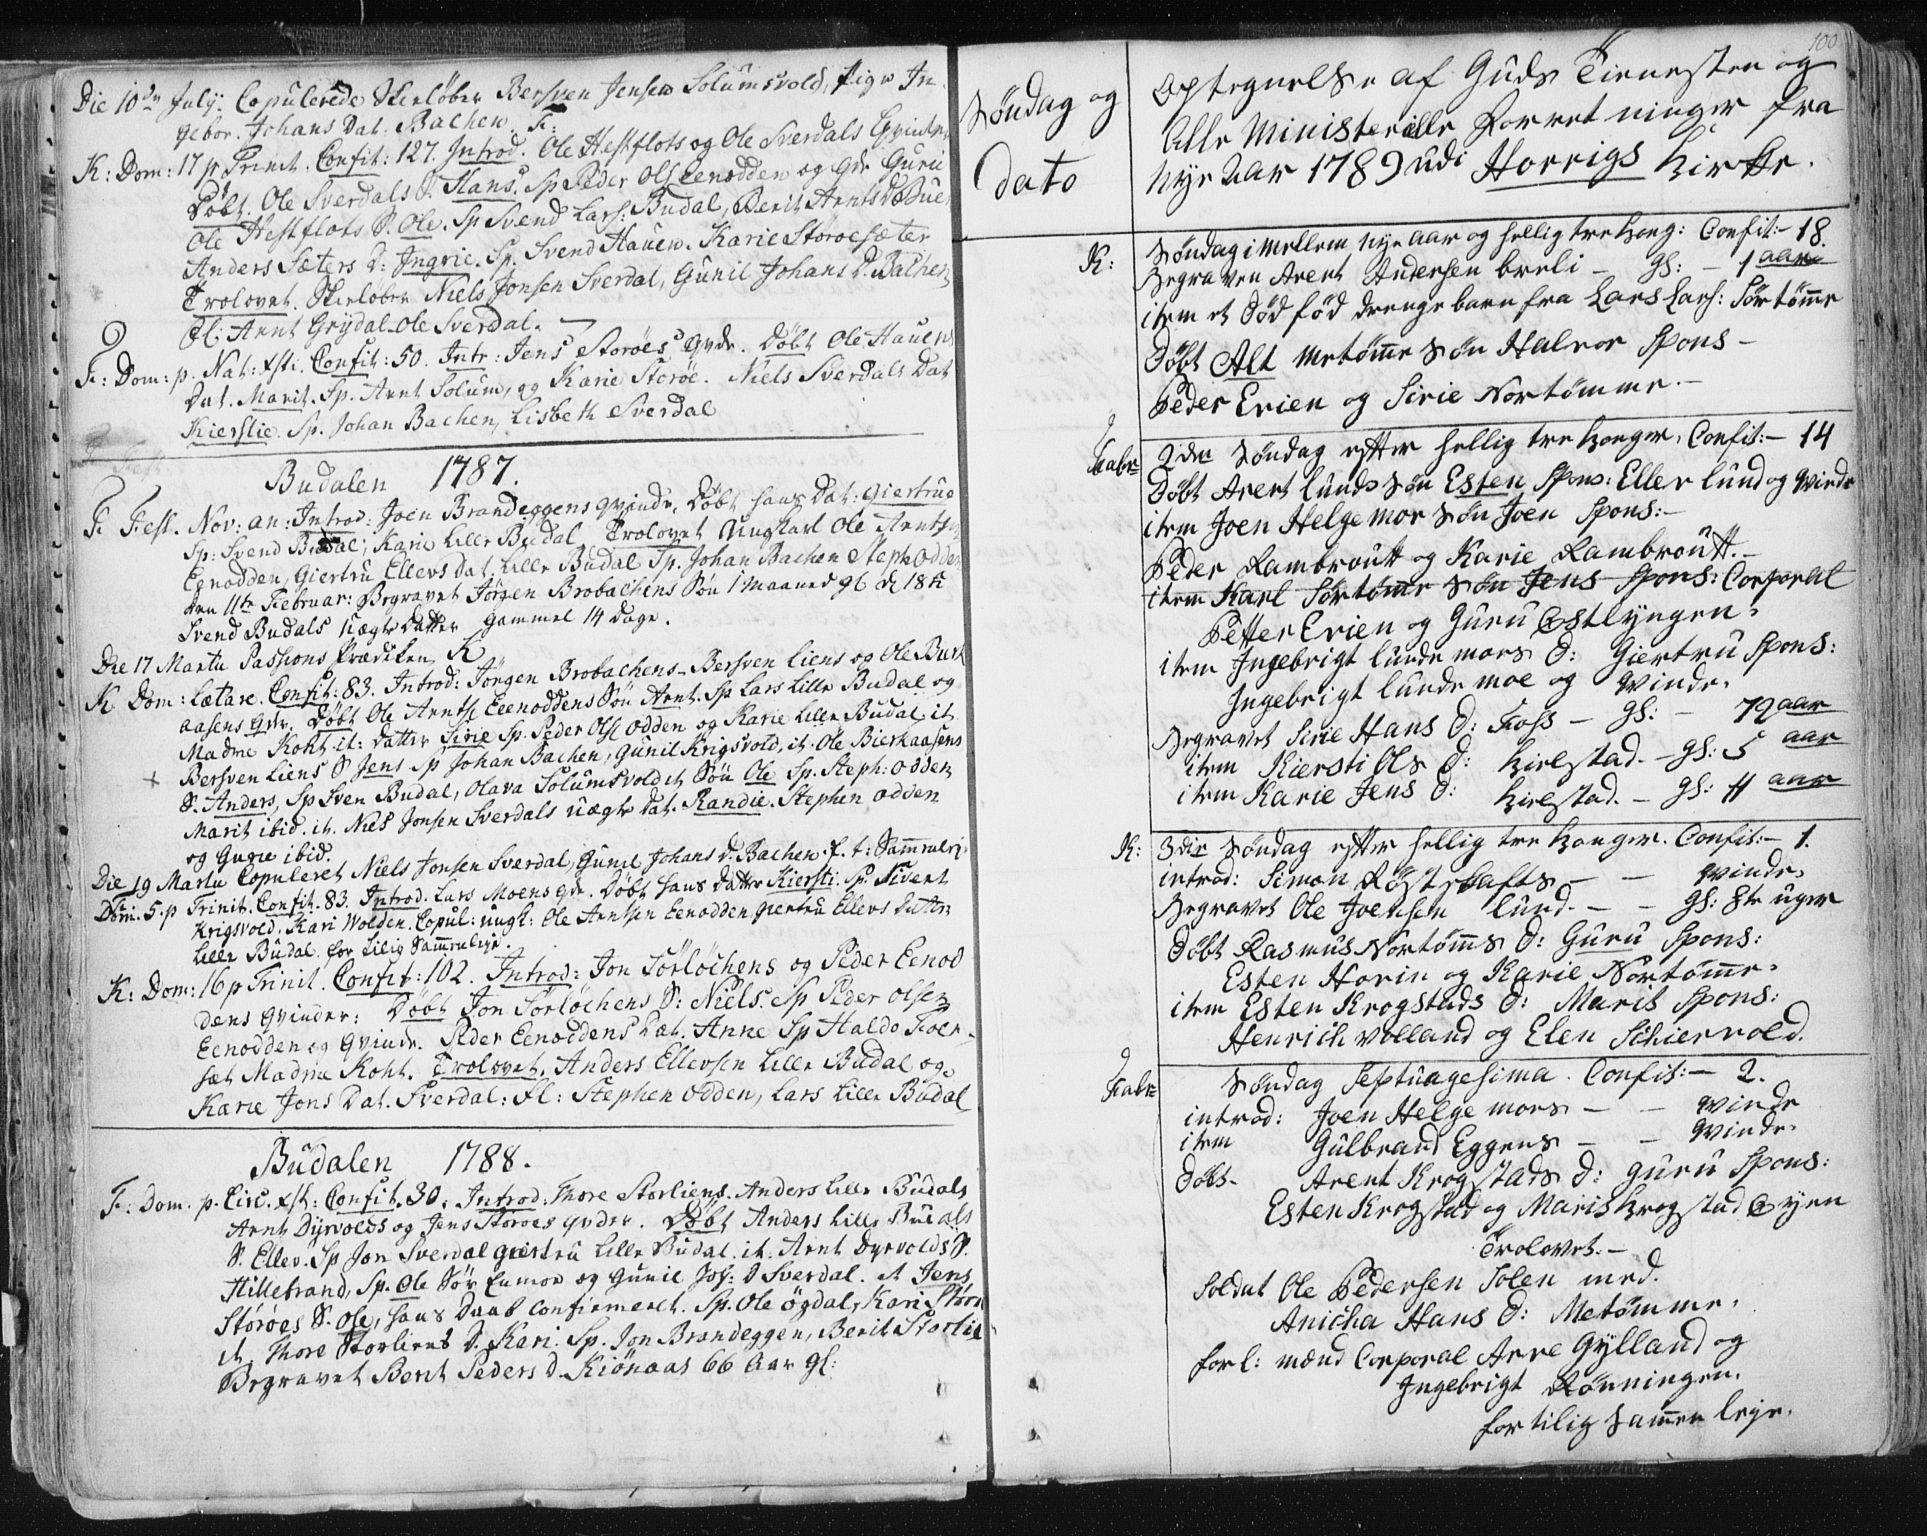 Die 10de July. Copulerede Skieløber Bersven Jensen Solumsvold, Pige In-
gebor. Johans Dat. Bachen F:
K: Dom: 17 p Trinit. Confit: 127. Introd. Ole Hestflots og Ole Sverdals Qvinder
Døbt. Ole Sverdals S. Hans. Sp Peder Ols Eenodden og qde Guru
Ole Hestflots S. Ole. Sp Svend Lars: Budal, Berit Arnts D Bue
Anders Sæters D: Ingrie. Sp. Svend Hauen. Karie Storoesæter
Trolovet. Skieløber Niels Jonsen Sverdal, Gunil Johans D. Bachen
Fl: Arnt Grydal Ole Sverdal.
F: Dom: p. Nat: Xsti. Confit: 50. Intr: Jens Storøes Qvde. Døbt Ole Hauens
Dat. Marit. Sp. Arnt Solum, og Karie Storøe. Niels Sverdals Dat
Kierstie. Sp. Johan Bachen, Lisbeth Sverdal
Budalen 1787.
F. Fest. Nov: an: Introd: Joen Brandeggens qvinde, Døbt hans Dat: Giertrue
Sp: Svend Budal, Karie Lille Budal Trolovet Ungkarl Ole Arntsen
Eenodden, Giertru Ellevs Dat. Lille Budal Sp. Johan Bachen Steph Odden
den 11te Februar: Begravet Jørgen Brobachens Søn 1 Maaned
Svend Budals Uægte Datter Gammel 14 Dage.
Die 17 Martii Passions Prædiken K
K Dom: Lætare. Confit: 83. Introd: Jørgen Brobachens - Bersven Liens og Ole Burk
aasens qvdr. Døbt Ole Arnts Eeenoddens Søn Arnt. Sp Lars Lille Budal og
Madme Koht it: Datter Sirie Sp. Peder Ols Odden og Karie Lille Budal, it
Bersven Liens S Jens Sp Johan Bachen, Gunil Krigsvold, it. Ole Bierkaasens
S. Anders, Sp Sven Budal, Olava Solumsvold it Søn Ole Sp. Steph: odden
Marit ibid. it. Niels Jonsen Sverdals uægte Dat. Randie. Stephen odden
og Gurie ibid.
Die 19 Martii Copuleret Niels Jonsen Sverdal, Gunil Johans D. Bachen f. t: Sammelej.
Dom. 5. p Trinit. Confit. 83. Introd. Lars Moens qde. Døbt hans datter Kiersti. Sp. Sivert
Krigsvold. Kari Wolden. Copul: ungk: Ole Arntsen Eenodden Giertru Ellevs Datter
Lille Budal. for Tilig Sammeleje.
K: Dom: 16 p Trinit. Confit: 102. Introd: Jon Sørløchens og Peder Eenod
dens qvinder: Døbt Jon Sørløchens S: Niels. Sp Peder Olsen
Eenodden og Qvinde. Peder Eenoddens Dat. Anne Sp Haldo Foer-
sæt Madme Koht. Trolovet. Anders Ellevsen Lille Budal og
Karie Jons Dat. Sverdal: Fl: Stephen Odden, Lars Lille Budal
Budalen 1788.
F: Dom. p. Circ. Xst: Confit. 30. Introd: Thore Storliens. Anders Lille Budals
Arnt Dyrvolds og Jens Storøes qvder. Døbt Anders Lille Budals
S. Ellev. Sp Jon Sverdal giertru Lille Budal. it. Arnt Dyrvolds S.
Hillebrand, Sp. Ole Sør Enmoe og Gunil Joh: D Sverdal. it Jens
Storøes S. Ole, hans Daab Confirmeret. Sp. Ole Øgdal, Kari Storø
it Thore Storliens D. Kari. Sp. Jon Brandeggen, Berit Storlie
Begravet Berit Peders D. Kiønaas 66 Aar gl:
100
Søndag og
dato
Optegnelse af Guds Tienesten og
Alle Ministerialle Forretninger fra
Nye Aar 1789 udi Horrigs Kirke.
K: Søndag imellem nye aar og hellig tre Kong: Confit:- 18.
Begraven Arent Andersen breli - gl: - 1 aar
item et død fød drenge barn fra Lars Lars: Sørtømme
Døbt Alt Metømme Søn Halvor Spons -
Peder Erien og Sirie Nortømme.-
2den Søndag efter hellig tre Konger, Confit:- 14
Døbt Arent Lunds Søn Esten Spons: Eller Lund og qvinde
item Joen Helgemor Søn Joen Spons:-
Peder Rambroutt og Karie Rambroutt.-
item Karl Sørtømme Søn Jens Spons: Corporal
Petter Erien og Guru Østlyngen.
item Ingebrigt Lundemors D: Giertru Spons:
Ingebrigt Lundemoe og Qvinde.
Begravet Sirie Hans D: Foss - gl: - 72 aar
item Kiersti Ols D: Kielstad. - gl: 5 aar
item Karie Jens D: Kielstad. - gl: 11 aar
K: 3die Søndag efter hellig tre Konger. Confit:- 1.
introd: Simon Røstskafts - - Qvinde.
Begravet Ole Joensen Lund. - - gl: 8te uger
Døbt Rasmus Nortømms D: Guru Spons:
Esten Horin og Karie Nortømme.
item Esten Krogstads D: Marit Spons:
Henrich Volland og Elen Schiervold.
Søndag Septuagesima. Confit:- 2.
introd: Joen Helgemors - - qvinde
item Gulbrand Eggens - - Qvinde.
Døbt- Arent Krogstads D: Guru Spons:
Esten Krogstad og Marit Krogstad Øyen
Trolovet.-
Soldat Ole Pedersen Solen med.
Anicha Hans D: Metømme.
forl: mænd Corporal Arne Gylland og
Ingebrigt Rønningen.
for tilig Sammen leje.